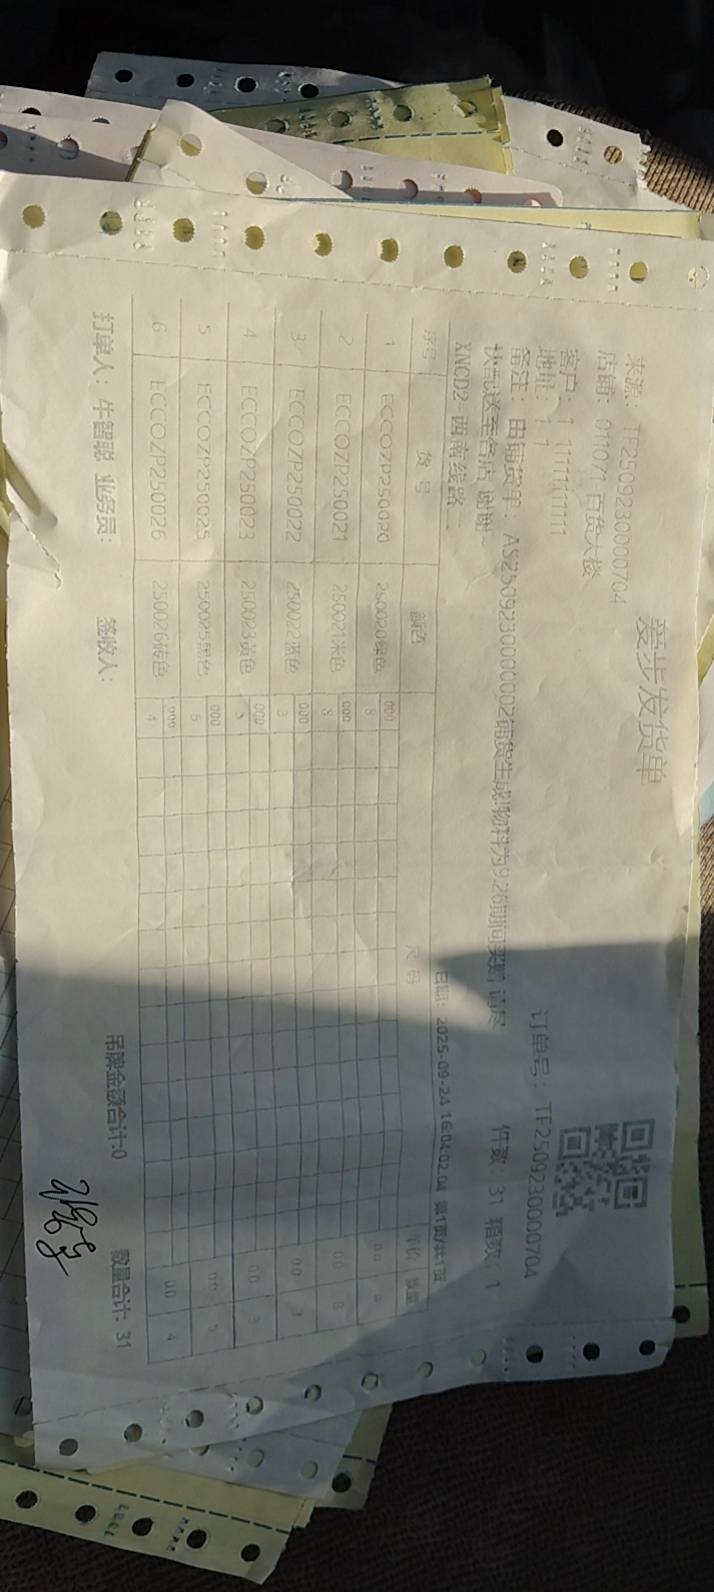 爱步发货单
来源：TF2509230000704
店铺：011071 百货大楼
客户：1 1111111111
订单号：TF2509230000704
地址：1 1
备注：由铺货单：AS2509230000002铺货生成!物料为9.26期间买赠 请尽快配送至各店 谢谢
件数：31 箱数：1
XNCD2 西南线路一
日期：2025-09-24 16:04:02.04 第1页/共1页
序号 货号 颜色 尺码 单价 数量
1 ECCOZP250020 250020绿色 000 8 0.0 8
2 ECCOZP250021 250021米色 000 8 0.0 8
3 ECCOZP250022 250022蓝色 000 3 0.0 3
4 ECCOZP250023 250023黄色 000 3 0.0 3
5 ECCOZP250025 250025黑色 000 5 0.0 5
6 ECCOZP250026 250026砖色 000 4 0.0 4
打单人：牛智聪 业务员： 签收人： 吊牌金额合计:0 数量合计: 31